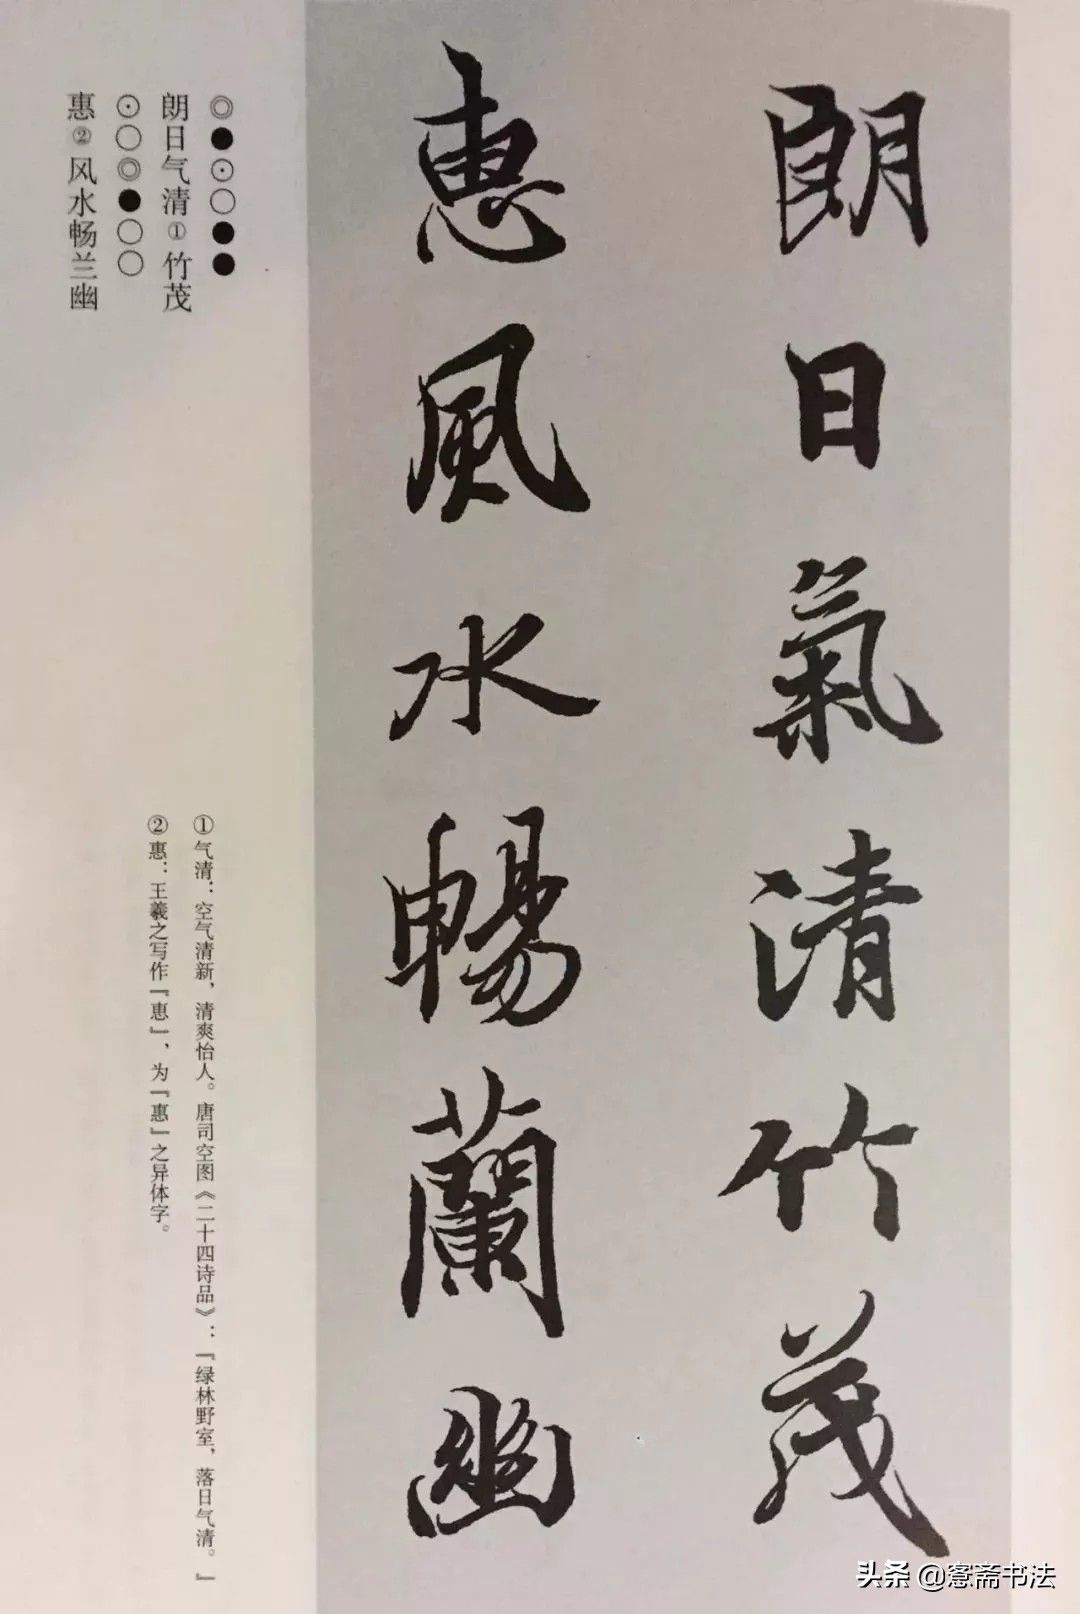 朗日氣清竹茂
恵風水暢蘭幽
◎●⊙○●●
朗日气清①竹茂
⊙○◎●○○
惠②风水畅兰幽
①气清：空气清新，清爽怡人。唐司空图《二十四诗品》：『绿林野室，落日气清。』
②惠：王羲之写作『恵』，为『惠』之异体字。
头条@窓斋书法